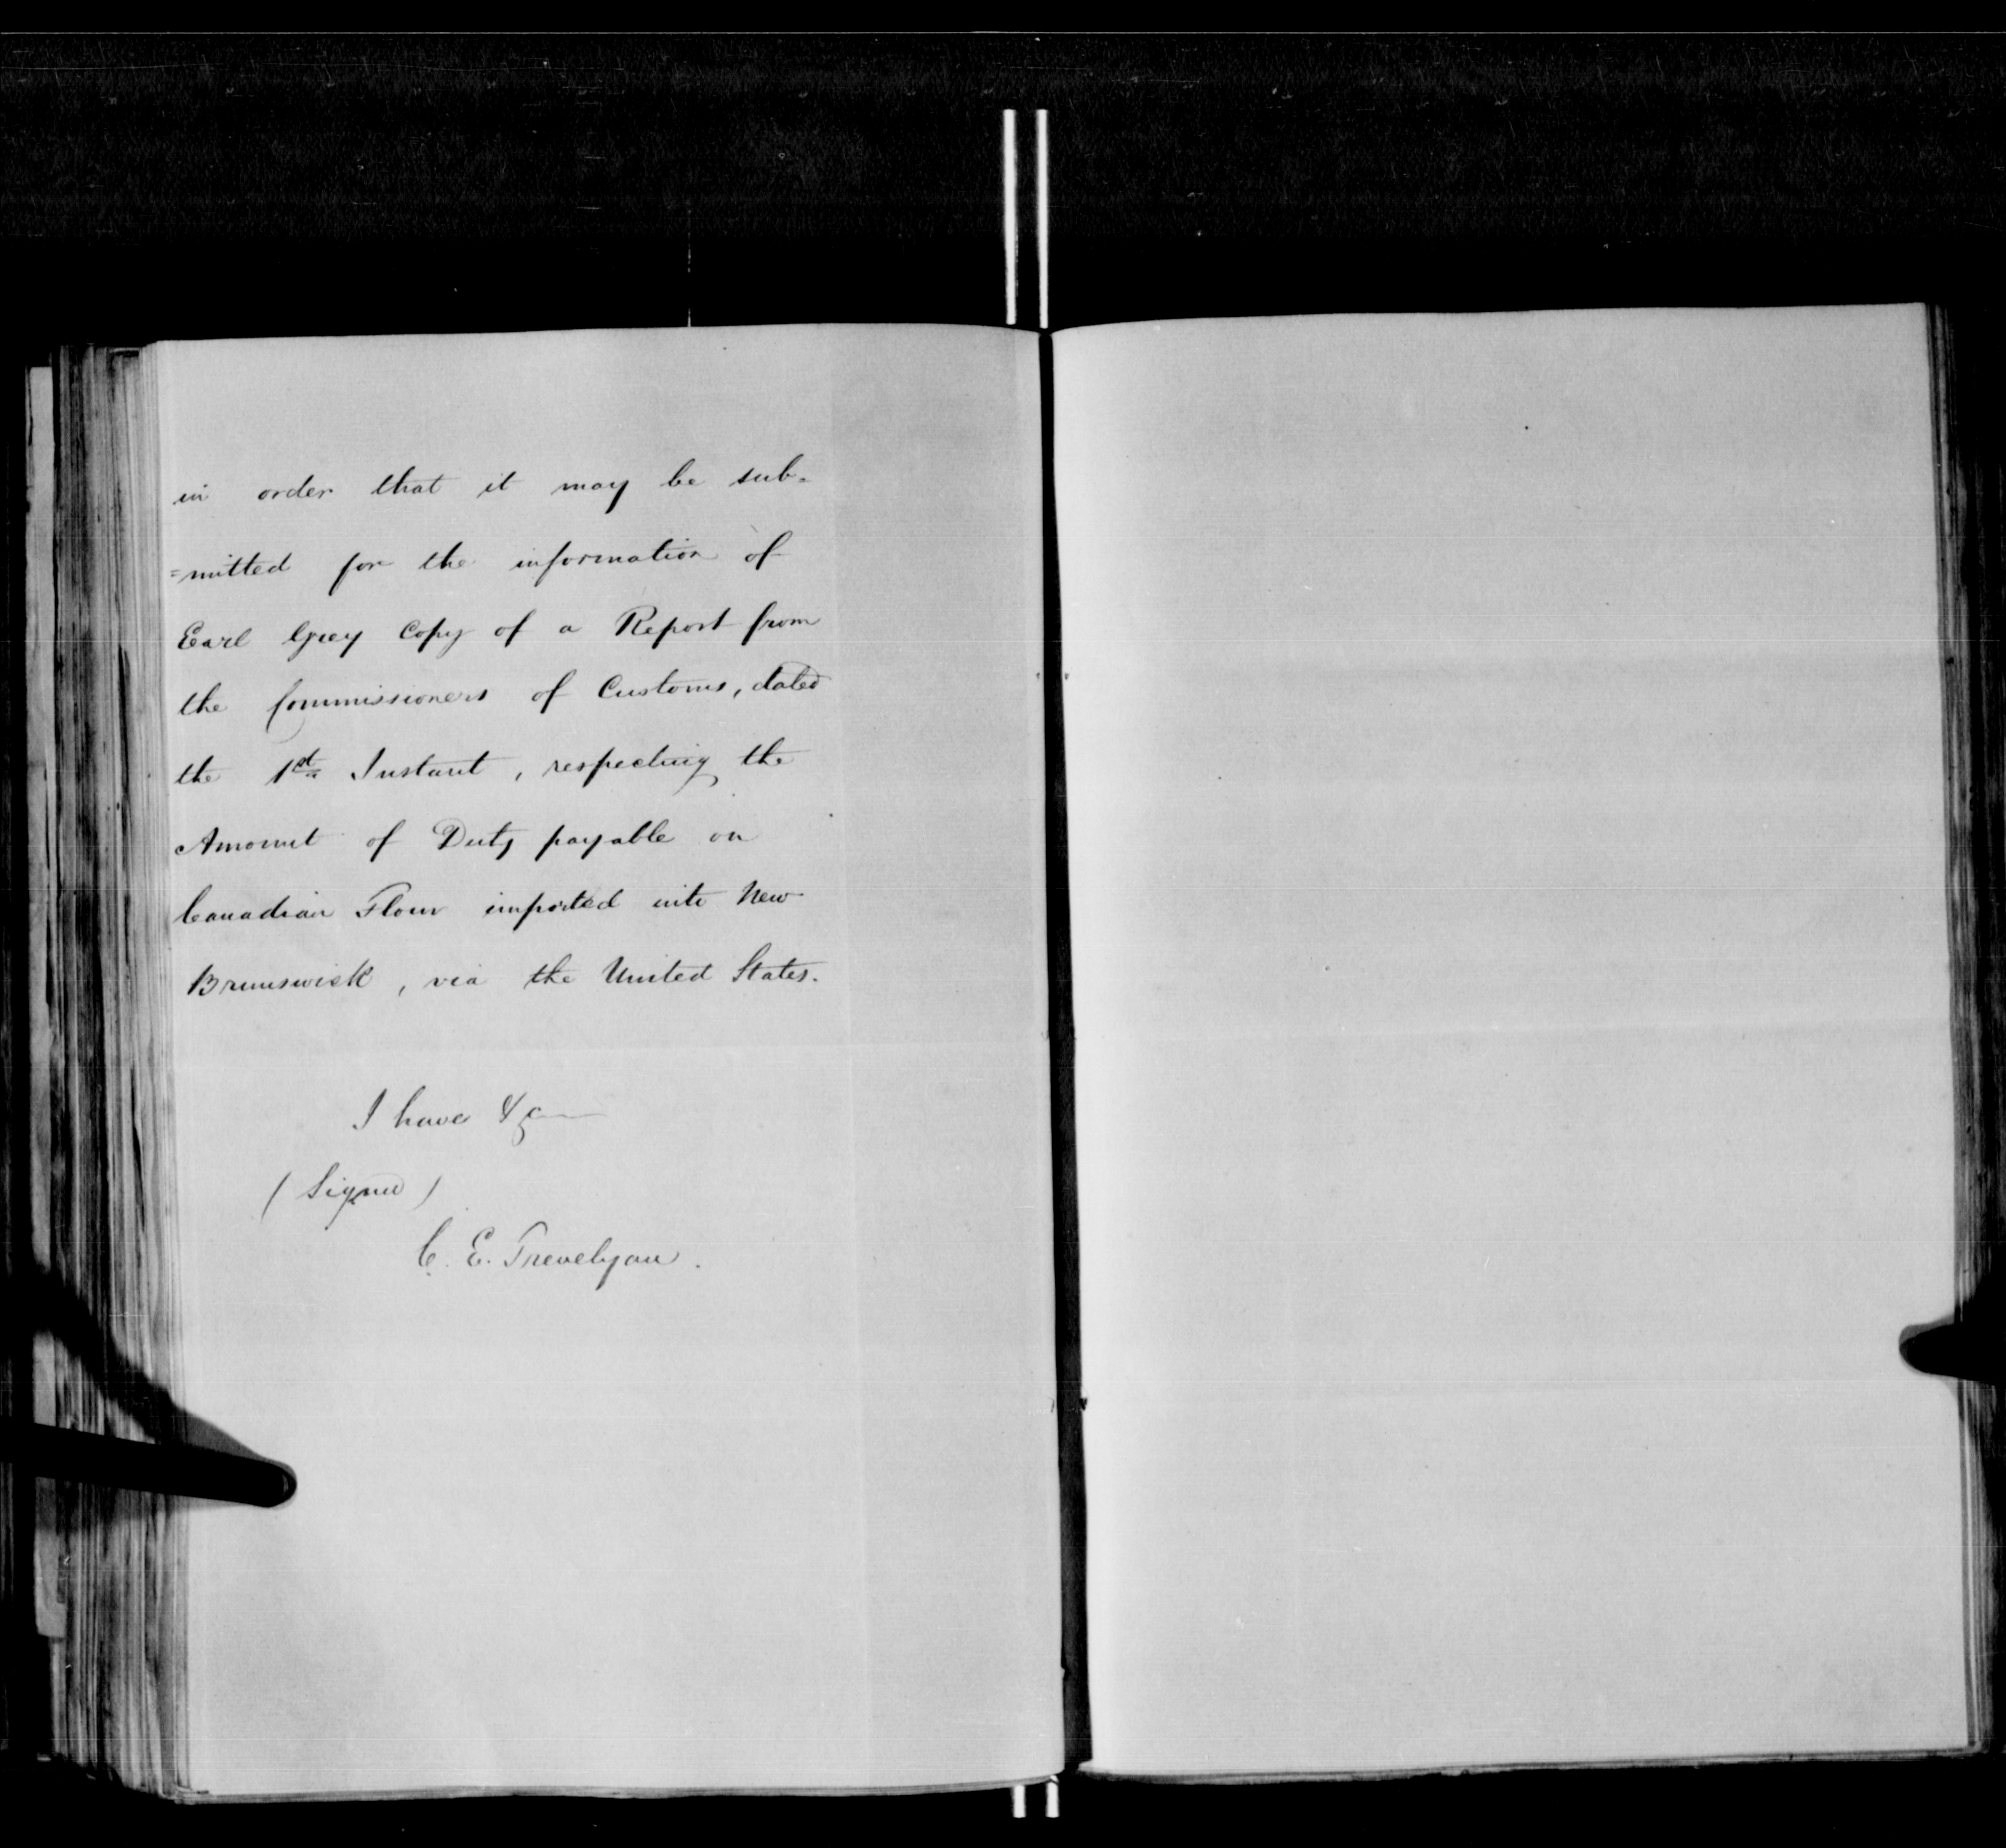 in order that it may be sub=
=mitted for the information of
Earl Grey Copy of a Report from
the Commissioners of Customs, dated
the 1st Instant, respecting the
Amount of Duty payable on
Canadian Flour imported into New
Brunswick, via the United States.
I have &c
(Signed)
C. E. Trevelyan.